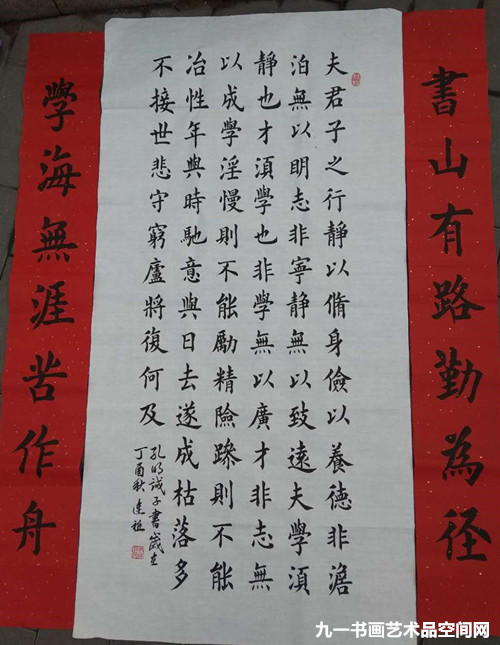 書山有路勤為径
夫君子之行静以脩身儉以養德非澹
泊無以明志非寧静無以致遠夫學湏
静也才湏學也非學無以廣才非志無
以成學淫慢則不能勵精險躁則不能
冶性年與時馳意與日去遂成枯落多
不接世悲守窮廬將復何及
孔明誡子書歲在
丁酉秋
學海無涯苦作舟
九一书画艺术品空间网